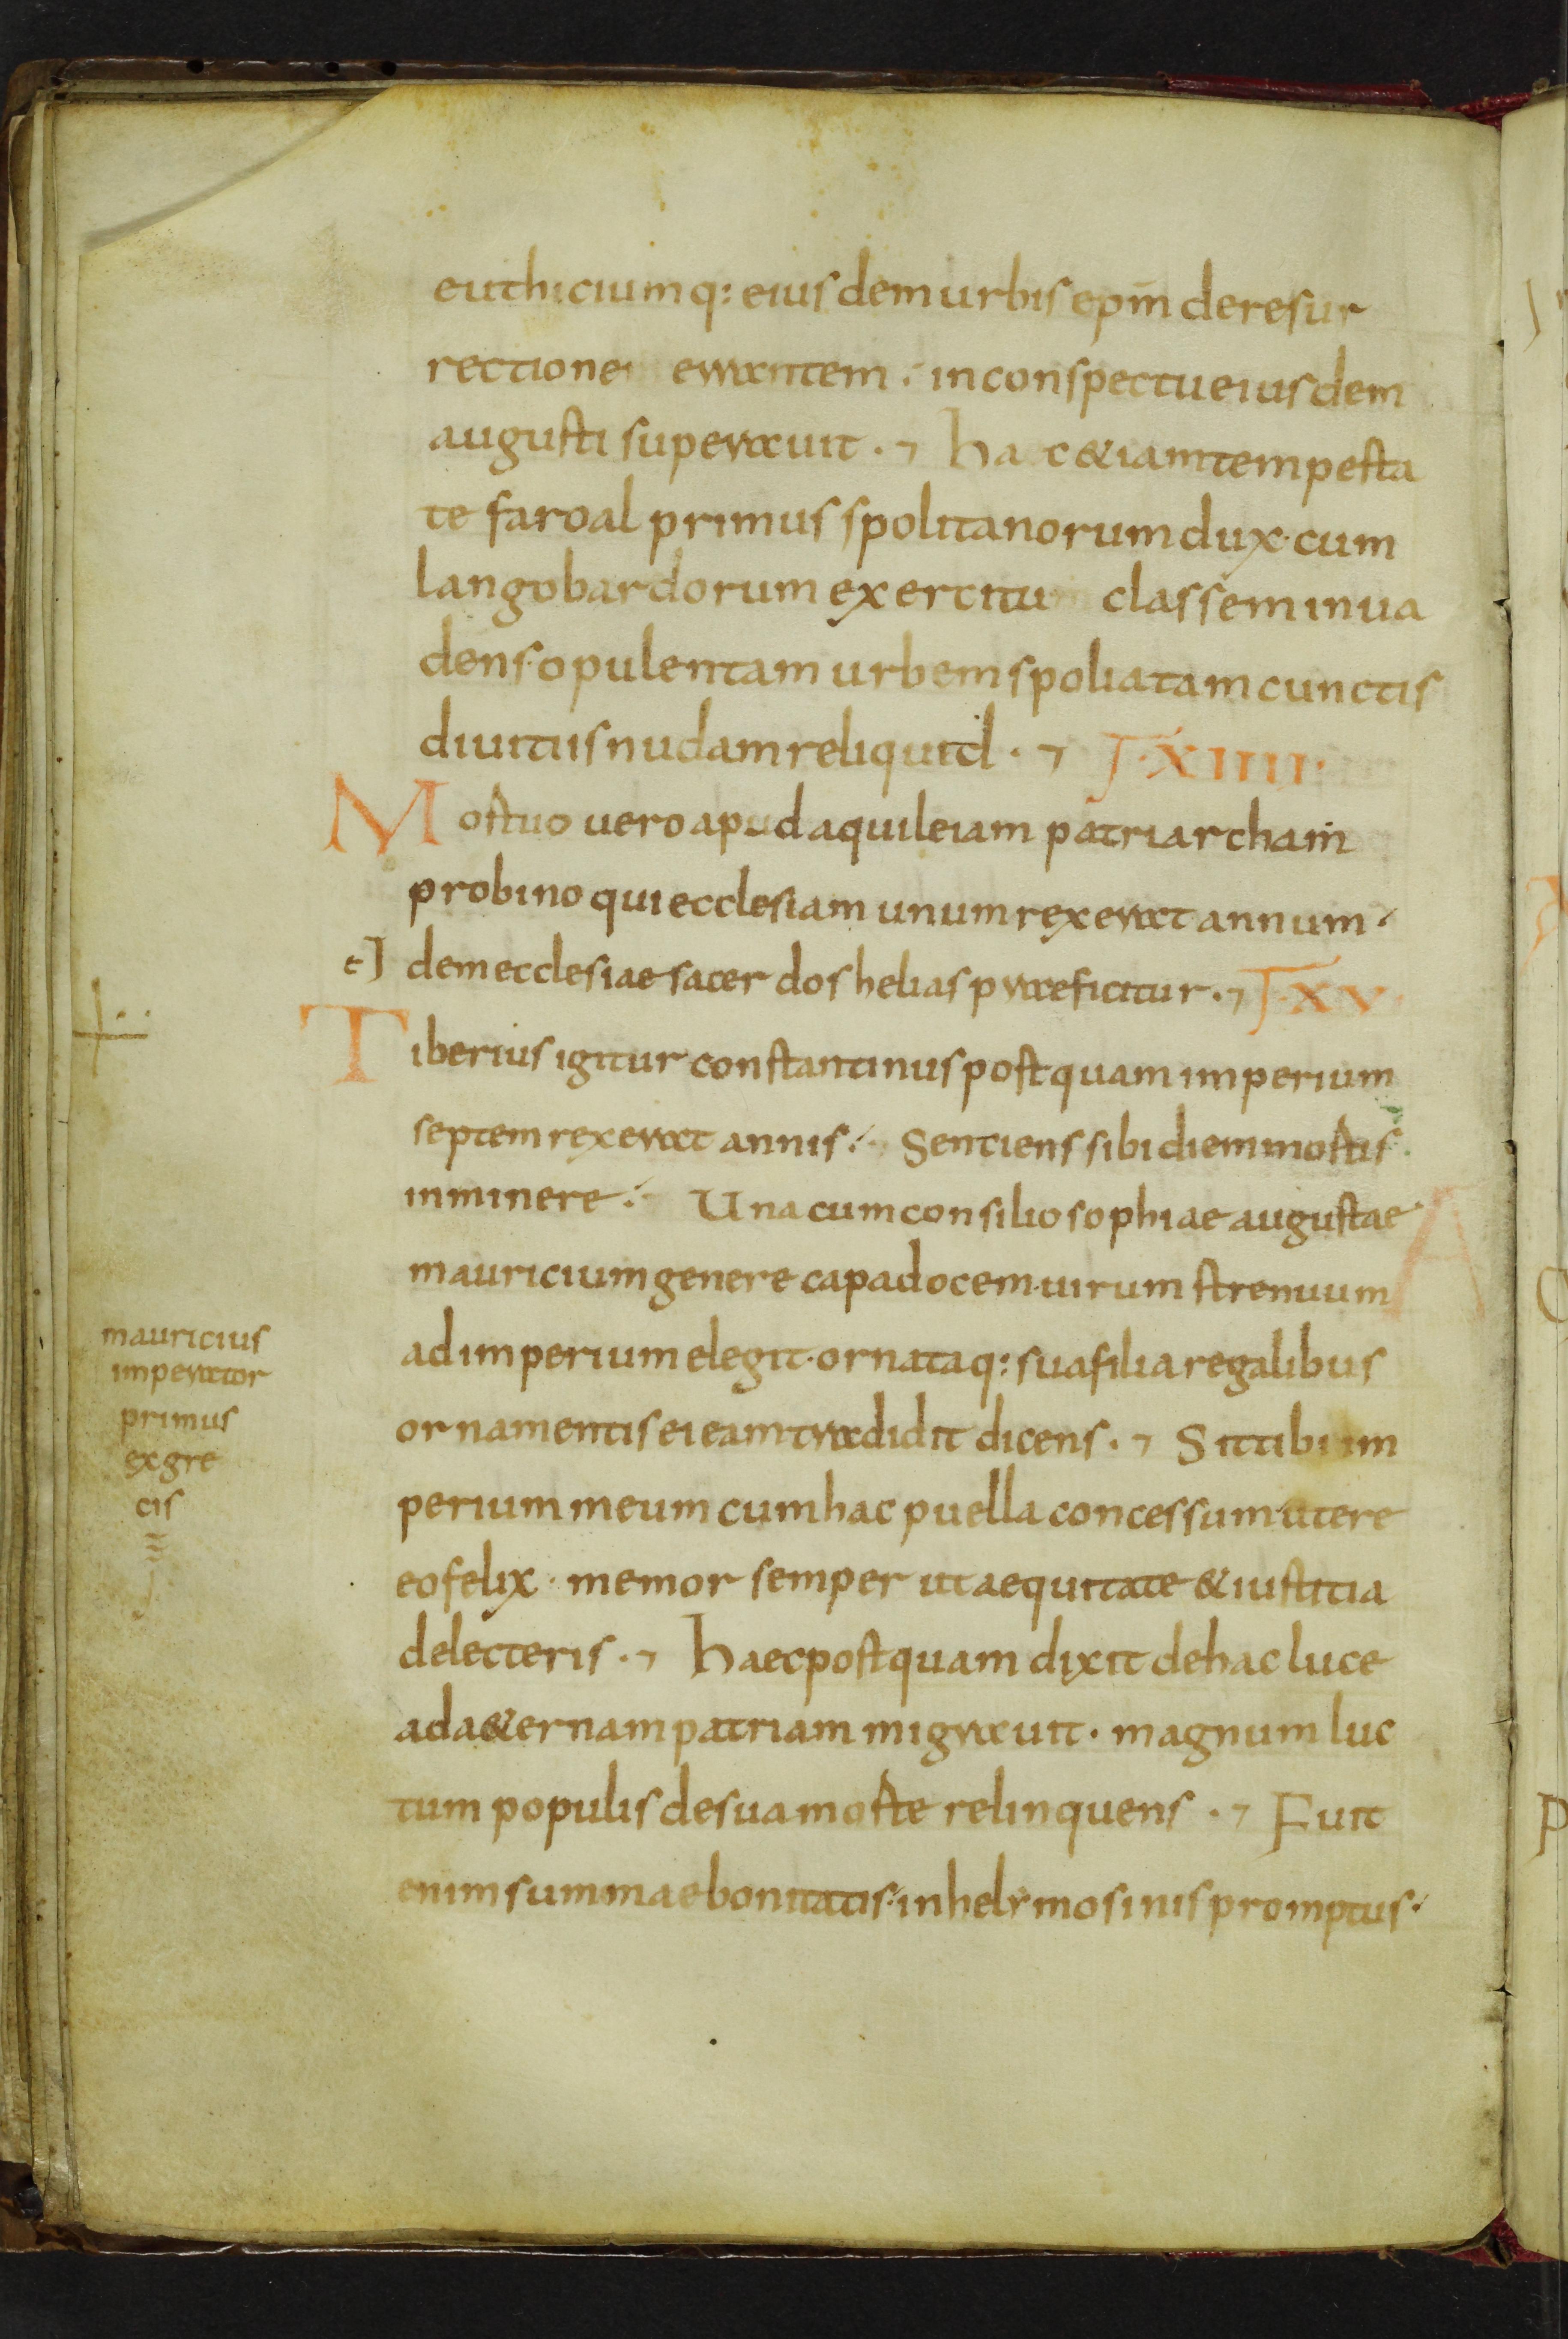 euthiciumq: eiusdem urbis epm̄ de resur
rectione errantem ⁏ in conspectu eiusdem
augusti superauit . ⁊ hac &iam tempesta
te faroal primus spolitanorum dux · cum
langobardorum exercitu classem inua
dens · opulentam urbem spoliatam cunctis
diuitiis nudam reliquid . ⁊ XIIII ·
Mortuo uero apud aquileiam patriarcham
probino qui ecclesiam unum rexerat annum ·
eidem ecclesiae sacerdos helias praeficitur . ⁊ XV
Tiberius igitur constantinus postquam imperium
septem rexerat annis ⁏ Sentiens sibi diem mortis
inminere ⁏ Una cum consilio sophiae augustae
mauricium genere capadocem · uirum strenuum
ad imperium elegit · ornataq: sua filia regalibus
ornamentis ei eam tradidit dicens . ⁊ Sit tibi im
perium meum cum hac puella concessum · utere
eo felix · memor semper ut aequitate & iustitia
delecteris . ⁊ haec postquam dixit de hac luce
ad a&ernam patriam migrauit · magnum luc
tum populis de sua morte relinquens . ⁊ Fuit
enim summae bonitatis ⁏ in helymosinis promptus ·
mauricius
imperator
primus
ex gre
cis